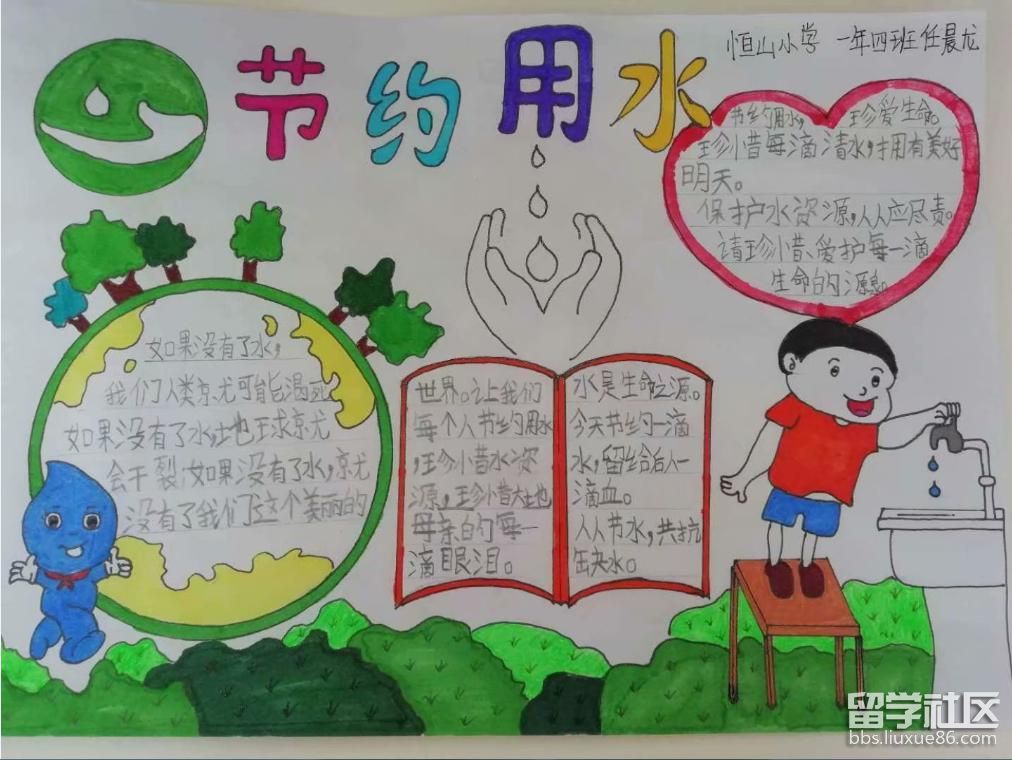 节约用水
恒山小学 一年四班任晨龙
节约用水, 珍爱生命。
珍惜每滴清水,才拥有美好
明天。
保护水资源,人人应尽责。
请珍惜、爱护每一滴
生命的源泉。
如果没有了水,
我们人类就尤可能渴死
如果没有了水,地球就
会干裂;如果没有了水,就
没有了我们这个美丽的
世界。让我们
每个人节约用水
,珍惜水资
源,珍惜大地
母亲的每一
滴眼泪。
水是生命之源。
今天节约一滴
水,留给后人一
滴血。
人人节水,共抗
缺水。
留学社区
bbs.liuxue86.com